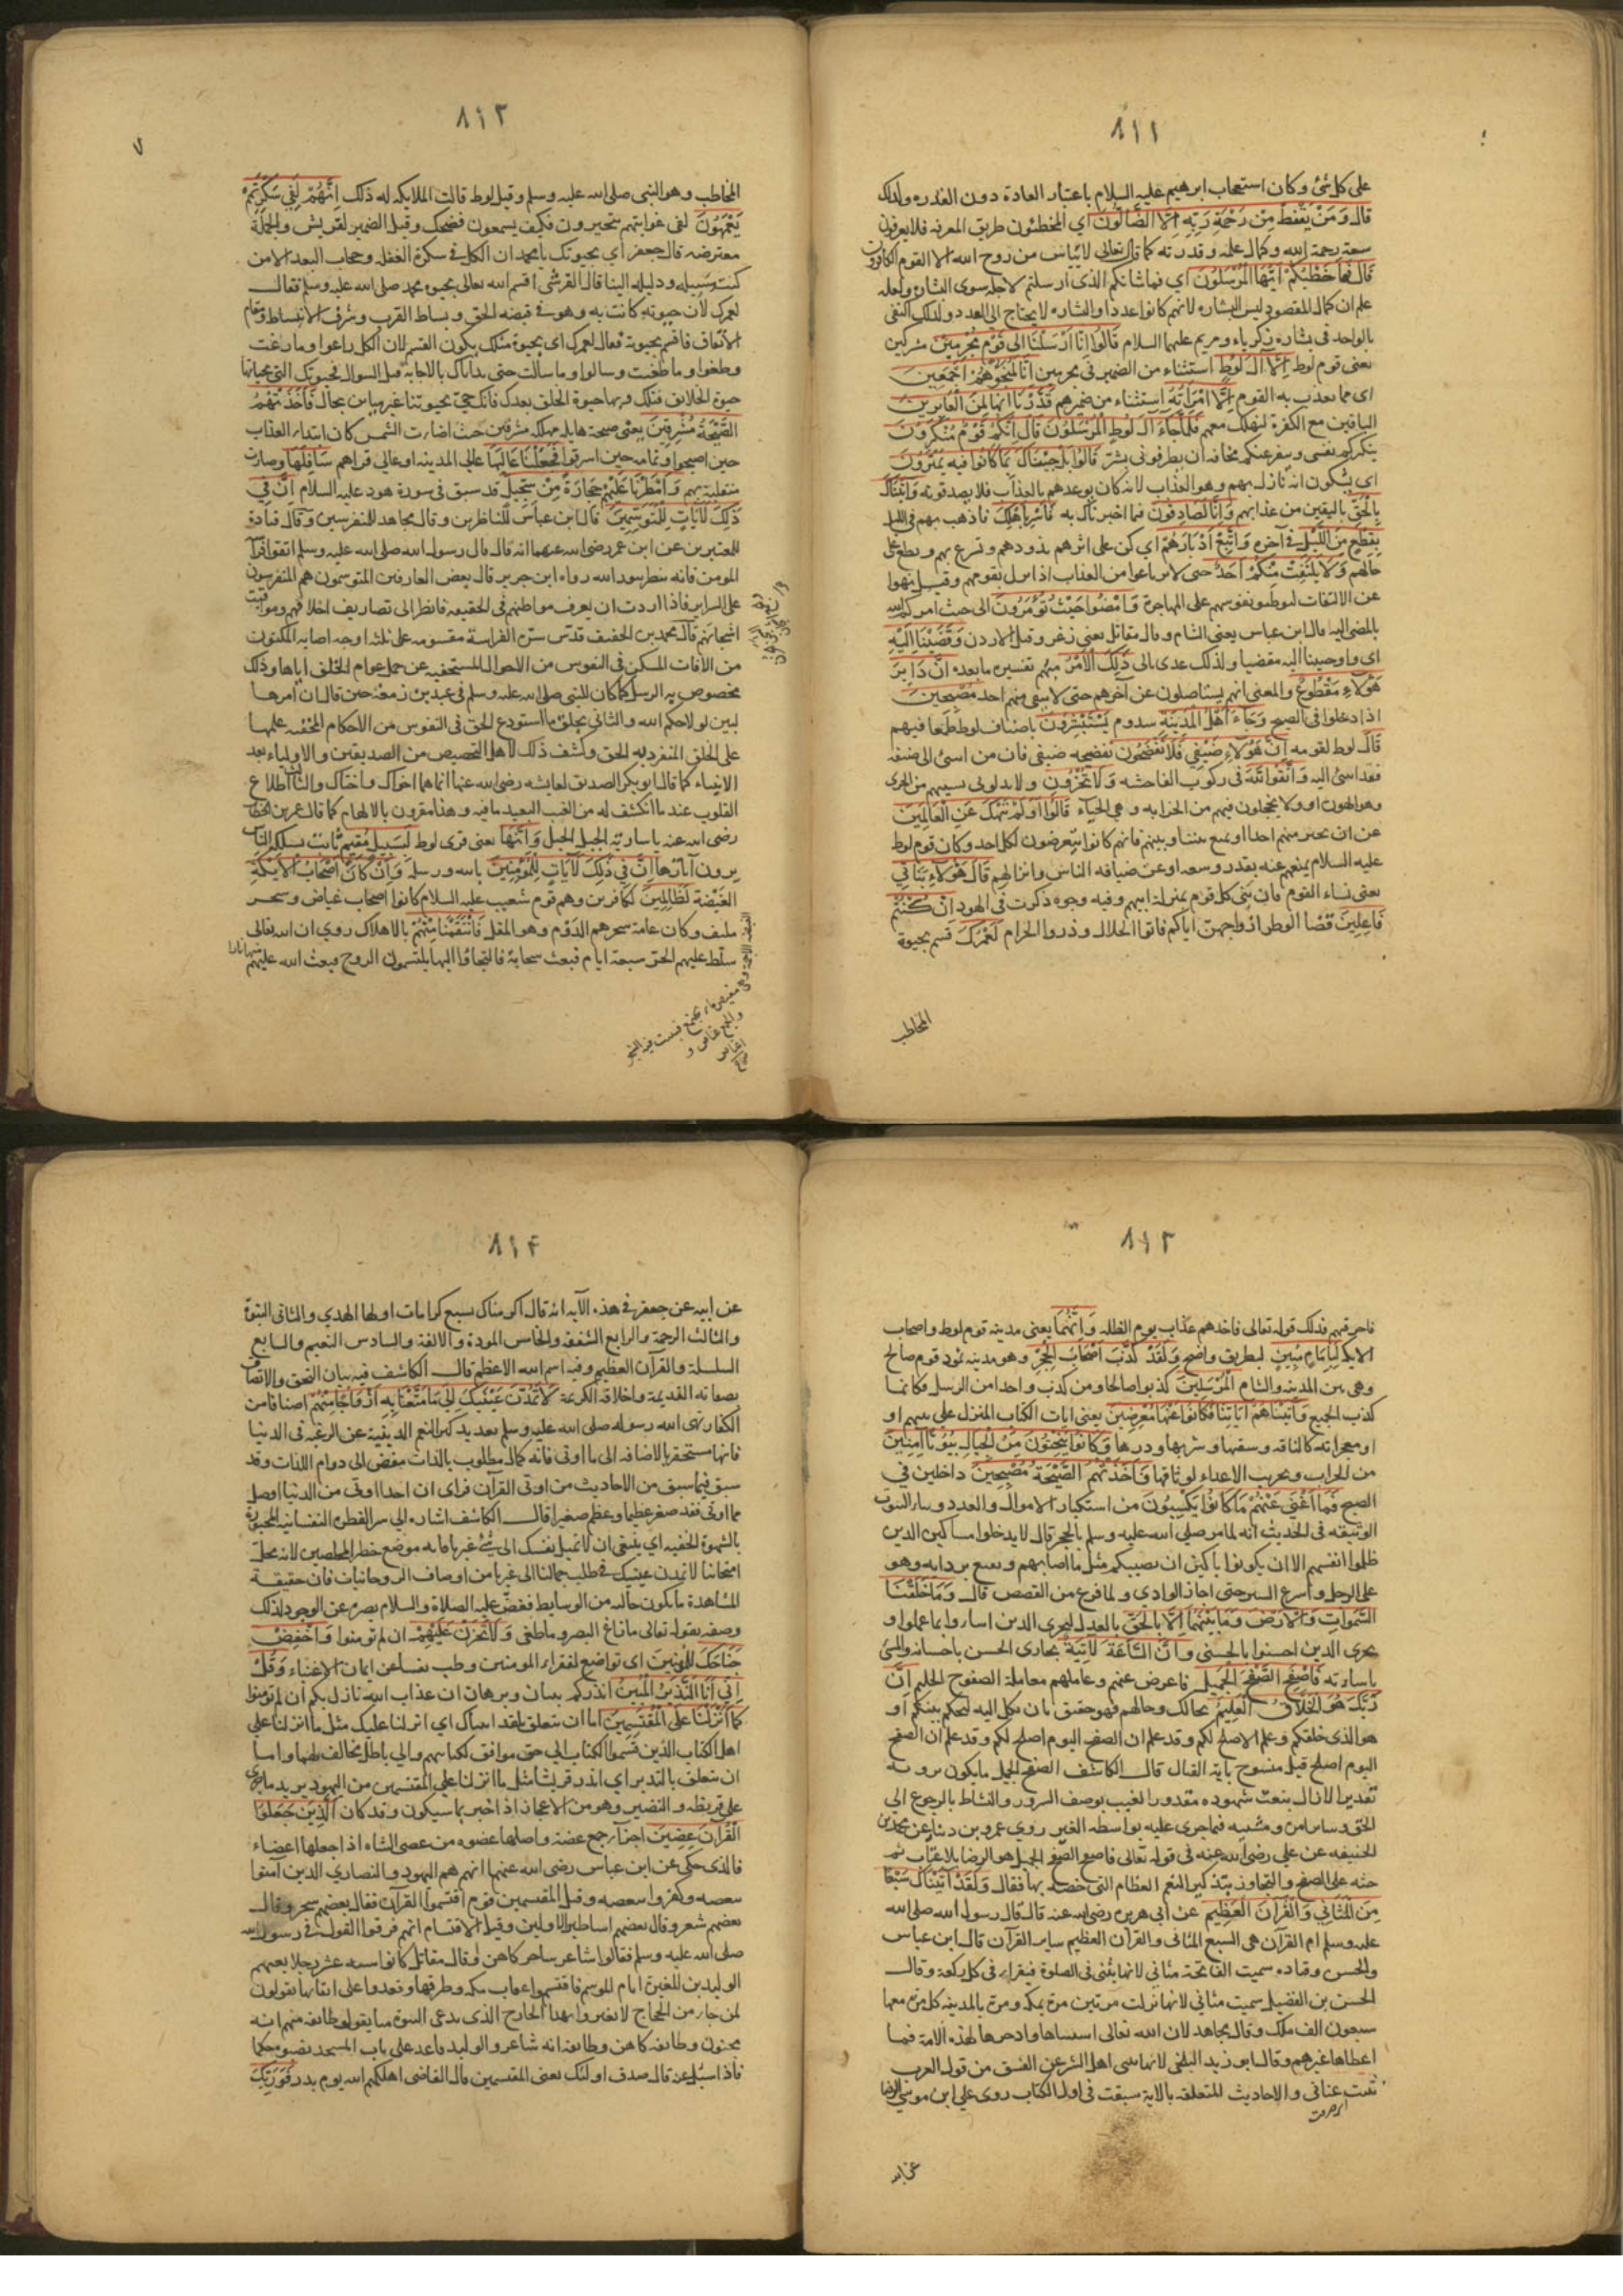 ٨١١
على كل شئ وكان استعجاب ابرهيم عليه السلام باعتبار العادة دون القدره ولذلك
قال وَمَنْ يَقْنَطُ مِنْ رَحْمَةِ رَبِّهِ اِلَّا الضَّالُّونَ اي المخطئون طريق المعرفه فلا يعرفون
سعة رحمة الله وكمال علمه وقدرته كما قال تعالى لا ييأس من روح الله الا القوم الكافرون
قَالَ فَمَا خَطْبُكُمْ اَيُّهَا الْمُرْسَلُونَ اي فما شانكم الذى ارسلتم لاجله سوى البشاره ولعله
علم ان كمال المقصود ليس البشاره لانهم كانوا عددا والبشاره لا يحتاج الى العدد ولذلك اكتفى
بالواحد فى بشارة زكرياء ومريم عليهما السلام قَالُوا اِنَّا اُرْسِلْنَا اِلَى قَوْمٍ مُجْرِمِينَ مشركين
يعنى قوم لوط اِلَّا آلَ لُوطٍ استثناء من الضمير فى مجرمين اِنَّا لَمُنَجُّوهُمْ اَجْمَعِينَ
اى مما يعذب به القوم اِلَّا امْرَاَتَهُ استثناء من ضميرهم قَدَّرْنَا اِنَّهَا لَمِنَ الْغَابِرِينَ
الباقين مع الكفرة لتهلك معهم فَلَمَّا جَاءَ آلَ لُوطٍ الْمُرْسَلُونَ قَالَ اِنَّكُمْ قَوْمٌ مُنْكَرُونَ
ينكركم نفسى وينفر عنكم مخافة ان يطرقونى بشرّ قَالُوا بَلْ جِئْنَاكَ بِمَا كَانُوا فِيهِ يَمْتَرُونَ
اى يشكون انه نازل بهم وهو العذاب لانه كان يوعدهم بالعذاب فلا يصدقونه وَاَتَيْنَاكَ
بِالْحَقِّ باليقين من عذابهم وَاِنَّا لَصَادِقُونَ فما اخبرناك به فَاَسْرِ بِاَهْلِكَ فاذهب بهم فى الليل
بِقِطْعٍ مِنَ اللَّيْلِ فى آخره وَاتَّبِعْ اَدْبَارَهُمْ اي كن على اثرهم بذودهم وتسرع بهم وتطلع على
حالهم وَلَا يَلْتَفِتْ مِنْكُمْ اَحَدٌ حتى لا يرتاعوا من العذاب اذا نزل بقومهم وقيل نهوا
عن الالتفات ليوطنوا نفوسهم على المهاجرة وَامْضُوا حَيْثُ تُؤْمَرُونَ الى حيث امركم الله
بالمضى اليه قال ابن عباس يعنى الشام وقال مقاتل يعنى زغر وقيل الاردن وَقَضَيْنَا اِلَيْهِ
اى واوحينا اليه مقضيا ولذلك عدى بالى ذَلِكَ الْاَمْرَ مبهم تفسيره ما بعده اَنَّ دَابِرَ
هَؤُلَاءِ مَقْطُوعٌ والمعنى انهم يستاصلون عن آخرهم حتى لا يبقى منهم احد مُصْبِحِينَ
اذا دخلوا فى الصبح وَجَاءَ اَهْلُ الْمَدِينَةِ سدوم يَسْتَبْشِرُونَ باضياف لوط طمعا فيهم
قَالَ لوط لقومه اِنَّ هَؤُلَاءِ ضَيْفِي فَلَا تَفْضَحُونِ بفضيحه ضيفى فان من اسئ الى ضيفه
فقد اسئ اليه وَاتَّقُوا اللَّهَ فى ركوب الفاحشه وَلَا تُخْزُونِ ولا تذلونى بسببهم من الخزى
وهو الهون او ولا تخجلون فيهم من الخزايه وهى الحياء قَالُوا اَوَلَمْ نَنْهَكَ عَنِ الْعَالَمِينَ
عن ان تجير منهم احدا او تمنع بيننا وبينهم فانهم كانوا يتعرضون لكل احد وكان قوم لوط
عليه السلام يمنعهم عنه بقدر وسعه او عن ضيافة الناس وانزالهم قَالَ هَؤُلَاءِ بَنَاتِي
يعنى نساء القوم فان نبى كل قوم بمنزلة ابيهم وفيه وجوه ذكرت فى الهود اِنْ كُنْتُمْ
فَاعِلِينَ قضا الوطر ازواجهن اياكم فاتوا الحلال وذروا الحرام لَعَمْرُكَ قسم بحيوة
المخاطب
٨١٢
٧
المخاطب وهو النبى صلى الله عليه وسلم وقيل لوط قالت الملايكه له ذلك اِنَّهُمْ لَفِي سَكْرَتِهِمْ
يَعْمَهُونَ لفى غوايتهم يتحيرون فكيف يسمعون نصحك وقيل الضمير لقريش والجملة
معترضه قال جعفر اي بحيوتك يا محمد ان الكل فى سكرة الغفله وحجاب البعد الا من
كنت وسيله ودليله الينا قال القرشى اقسم الله تعالى بحيوه محمد صلى الله عليه وسلم فقال
لعمرك لان حيوته كانت به وهو فى قبضه الحق وبساط القرب وشرف الانبساط ومقام
الاتفاق فاقسم بحيوته فقال لعمرك اى بحيوة مثلك يكون القسم لان الكل زاغوا وما زغت
وطغوا وما طغيت وسالوا وما سالت حتى بداناك بالاجابة قبل السوال فحيوتك التى بحياتها
حيوة الخلايق فَاَخَذَتْهُمُ
الصَّيْحَةُ مُشْرِقِينَ يعنى صيحة هايله مهلكه مشرقين حيث اضاءت الشمس كان ابتداء العذاب
حين اصبحوا وتمامه حين اشرقوا فَجَعَلْنَا عَالِيَهَا عالى المدينه او عالى قراهم سَافِلَهَا وصارت
منقلبة بهم وَاَمْطَرْنَا عَلَيْهِمْ حِجَارَةً مِنْ سِجِّيلٍ قد سبق فى سورة هود عليه السلام اِنَّ فِي
ذَلِكَ لَآيَاتٍ لِلْمُتَوَسِّمِينَ قال ابن عباس للناظرين وقال مجاهد للمتفرسين وقال قتادة
للمعتبرين عن ابن عمر رضى الله عنهما انه قال قال رسول الله صلى الله عليه وسلم اتقوا فراسة
المومن فانه ينظر بنور الله رواه ابن جرير قال بعض العارفين المتوسمون هم المتفرسون
على السراير فاذا اردت ان يعرف مواطنهم فى الحقيقه فانظر الى تصاريف اخلاقهم
قال محمد بن الخفيف قدس سره الفراسة مقسومه على ثلثه اوجه اصابه المكنون
من الآفات المسكن فى النفوس من الاحوال المستخفيه عن حمل عوام الخلق اياها وذلك
مخصوص به الرسل كما كان للنبى صلى الله عليه وسلم فى عبد بن زمعة حين قال ان امرها
لبين لولا حكم الله والثانى بحلق ما استودع الحق فى النفوس من الاحكام الخفيه علمها
على الخلق المنفرد به الحق وكشف ذلك لاهل التخصيص من الصديقين والاولياء بعد
الانبياء كما قال ابو بكر الصديق لعايشه رضى الله عنها انما هما اخواك واختاك والثالث اطلاع
القلوب عند ما انكشف له من الغيب البعيد مافيه وهذا مقرون بالالهام كما قال عمر بن الخطاب
رضى الله عنه يا سارية الجبل الجبل وَاِنَّهَا يعنى قرى لوط لَبِسَبِيلٍ مُقِيمٍ ثابت يسلكه الناس
يرون آثارها اِنَّ فِي ذَلِكَ لَآيَاتٍ لِلْمُؤْمِنِينَ بالله ورسله وَاِنْ كَانَ اَصْحَابُ الْاَيْكَةِ
الغيضة لَظَالِمِينَ لكافرين وهم قوم شعيب عليه السلام كانوا اصحاب غياض وشجر
ملتف وكان عامة شجرهم الدوم وهو المقل فَانْتَقَمْنَا مِنْهُمْ بالاهلاك روي ان الله تعالى
سلّط عليهم الحرّ سبعة ايام فبعث سحابة فالتجاؤا اليها يلتمسون الروح فبعث الله عليهم
٨١٣
فاحرقهم فذلك قوله تعالى فاخذهم عذاب يوم الظله وَاِنَّهُمَا يعنى مدينه قوم لوط واصحاب
الايكه لَبِاِمَامٍ مُبِينٍ لبطريق واضح وَلَقَدْ كَذَّبَ اَصْحَابُ الْحِجْرِ وهو مدينه ثمود قوم صالح
وهى بين المدينه والشام الْمُرْسَلِينَ كذبوا صالحا ومن كذب واحدا من الرسل فكانما
كذب الجميع وَآتَيْنَاهُمْ آيَاتِنَا فَكَانُوا عَنْهَا مُعْرِضِينَ يعنى ايات الكتاب المنزل على نبيهم او
او معجزاته كالناقه وسقيها وشربها ودرها وَكَانُوا يَنْحِتُونَ مِنَ الْجِبَالِ بُيُوتًا آمِنِينَ
من الخراب وتخريب الاعداء لوثاقتها فَاَخَذَتْهُمُ الصَّيْحَةُ مُصْبِحِينَ داخلين في
الصبح فَمَا اَغْنَى عَنْهُمْ مَا كَانُوا يَكْسِبُونَ من استكثار الاموال والعدد وبناء البيوت
الوثيقه فى الحديث انه لما مر صلى الله عليه وسلم بالحجر قال لا يدخلوا مساكين الذين
ظلموا انفسهم الا ان يكونوا باكين ان يصيبكم مثل ما اصابهم وتقنع بردايه وهو
على الرحل واسرع السير حتى اجاز الوادي ولما فرغ من القصص قال وَمَا خَلَقْنَا
السَّمَوَاتِ وَالْاَرْضَ وَمَا بَيْنَهُمَا اِلَّا بِالْحَقِّ بالعدل ليجزى الذين اساءوا بما عملوا و
يجزى الذين احسنوا بالحسنى وَاَنَّ السَّاعَةَ لَآتِيَةٌ يجازى الحسن باحسانه والمسئ
باساءته فَاصْفَحِ الصَّفْحَ الْجَمِيلَ فاعرض عنهم وعاملهم معاملة الصفوح الحليم اِنَّ
رَبَّكَ هُوَ الْخَلَّاقُ الْعَلِيمُ بحالك وحالهم فهو حقيق بان تكل اليه ليحكم بينكم او
هو الذى خلقكم وعلم الاصلح لكم وقد علم ان الصفح اليوم اصلح لكم وقد علم ان الصفح
اليوم اصلح قيل منسوخ باية القتال قال الكاشف الصفح الجميل ما يكون برويه
تقدير الازال بنعت شهوده مقدور الغيب بوصف السرور والنشاط بالرجوع الى
الحق فيما جرى عليه بواسطه الغير روي عمرو بن دينار عن محمد بن
الحنيفه عن على رضى الله عنه فى قوله تعالى فاصفح الصفح الجميل هو الرضا بلا عتاب ثم
حثه على الصفح والتجاوز بتذكير النعم العظام التى خصه بها فقال وَلَقَدْ آتَيْنَاكَ سَبْعًا
مِنَ الْمَثَانِي وَالْقُرْآنَ الْعَظِيمَ عن ابى هريره رضى الله عنه قال قال رسول الله صلى الله
عليه وسلم ام القرآن هى السبع المثانى والقران العظيم ساير القرآن قال ابن عباس
والحسن وقتاده سميت الفاتحة مثاني لانها يثنى فى الصلوة فيقراء فى كل ركعة وقال
الحسن بن الفضيل سميت مثاني لانها نزلت مرتين مرة بمكه ومرة بالمدينه كل مرة معها
سبعون الف ملك وقال مجاهد لان الله تعالى استثناها وادخرها لهذه الامة فما
اعطاها غيرهم وقال ابو زيد البلخى لانها تثنى اهل الشر عن الفسق من قول العرب
ثنيت عنانى والاحاديث المتعلقه بالاية سبقت فى اول الكتاب روى على ابن موسى الرضا
عن ابيه
٨١٤
عن ابيه عن جعفر فى هذه الآيه انه قال اكرمناك بسبع كرامات اولها الهدي والثانى النبوة
والثالث الرحمة والرابع الشفقه والخامس المودة والالفة والسادس النعيم والسابع
السلسلة والقرآن العظيم وفيه اسم الله الاعظم قال الكاشف فيه بيان التحقق والاتصاف
بصفاته القديمة واخلاقه الكريمة لَا تَمُدَّنَّ عَيْنَيْكَ اِلَى مَا مَتَّعْنَا بِهِ اَزْوَاجًا مِنْهُمْ اصنافا من
الكفار نهى الله رسوله صلى الله عليه وسلم بعد تذكير النعم الدينية عن الرغبه فى الدنيا
فانها مستحقر بالاضافه الى ما اوتى فانه كمال مطلوب بالذات مفض الى دوام اللذات وقد
سبق فيما سبق من الاحاديث من اوتى القرآن فراى ان احدا اوتى من الدنيا افضل
مما اوتى فقد صغر عظيما وعظم صغيرا قال الكاشف اشاره الى سر الفطره النفسانيه
بالشهوة الخفيه اى ينبغى ان لا تميل نفسك الى شئ غيرنا فانه موضع خطر المخلصين لانه محل
امتحاننا لا تمدن عينيك فى طلب جمالنا الى غيرنا من اوصاف الروحانيات فان حقيقة
المشاهدة ما يكون خاليه من الوسايط فغض عليه الصلاة والسلام بصره عن الوجود لذلك
وصفه بقوله تعالى ما زاغ البصر وما طغى وَلَا تَحْزَنْ عَلَيْهِمْ ان لم تومنوا وَاخْفِضْ
جَنَاحَكَ لِلْمُؤْمِنِينَ اى تواضع لفقراء المومنين وطب نفسا عن ايمان الاغنياء وَقُلْ
اِنِّي اَنَا النَّذِيرُ الْمُبِينُ انذركم ببيان وبرهان ان عذاب الله نازل بكم ان لم تومنوا
كَمَا اَنْزَلْنَا عَلَى الْمُقْتَسِمِينَ اما ان يتعلق بلقد اتيناك اي انزلنا عليك مثل ما انزلنا على
اهل الكتاب الذين قسموا الكتاب الى حق موافق لكتابهم والى باطل مخالف لهما واما
ان يتعلق بالنذير اي انذر قريشا مثل ما انزلنا على المقتسمين من اليهود يريد ما جرى
على قريظه والنضير وهو من الاعجاز اذ اخبر بما سيكون وقد كان الَّذِينَ جَعَلُوا
الْقُرْآنَ عِضِينَ اجزآء جمع عضة واصلها عضوه من عضى الشاه اذا جعلها اعضاء
فالذى حكى عن ابن عباس رضى الله عنهما انهم هم اليهود والنصارى الذين آمنوا
ببعضه وكفروا ببعضه وقيل المقتسمين قوم اقتسموا القرآن فقال بعضهم سحر وقال
بعضهم شعر وقال بعضهم اساطير الاولين وقيل الاقتسام انهم فرقوا القول فى رسول الله
صلى الله عليه وسلم فقالوا شاعر ساحر كاهن وقال مقاتل كانوا سته عشر رجلا بعثهم
الوليد بن المغيرة ايام الموسم فاقتسموا عقاب مكه وطرقها وقعدوا على انقابها يقولون
لمن جاء من الحجاج لا تغتروا بهذا الخارج الذى يدعى النبوة منا يقول طايفه منهم انه
مجنون وطايفه كاهن وطايفه انه شاعر والوليد قاعد على باب المسجد نصبوه حكما
فاذا سئل عنه قال صدق اولئك يعنى المقتسمين قال القاضى اهلكهم الله يوم بدر فَوَرَبِّكَ